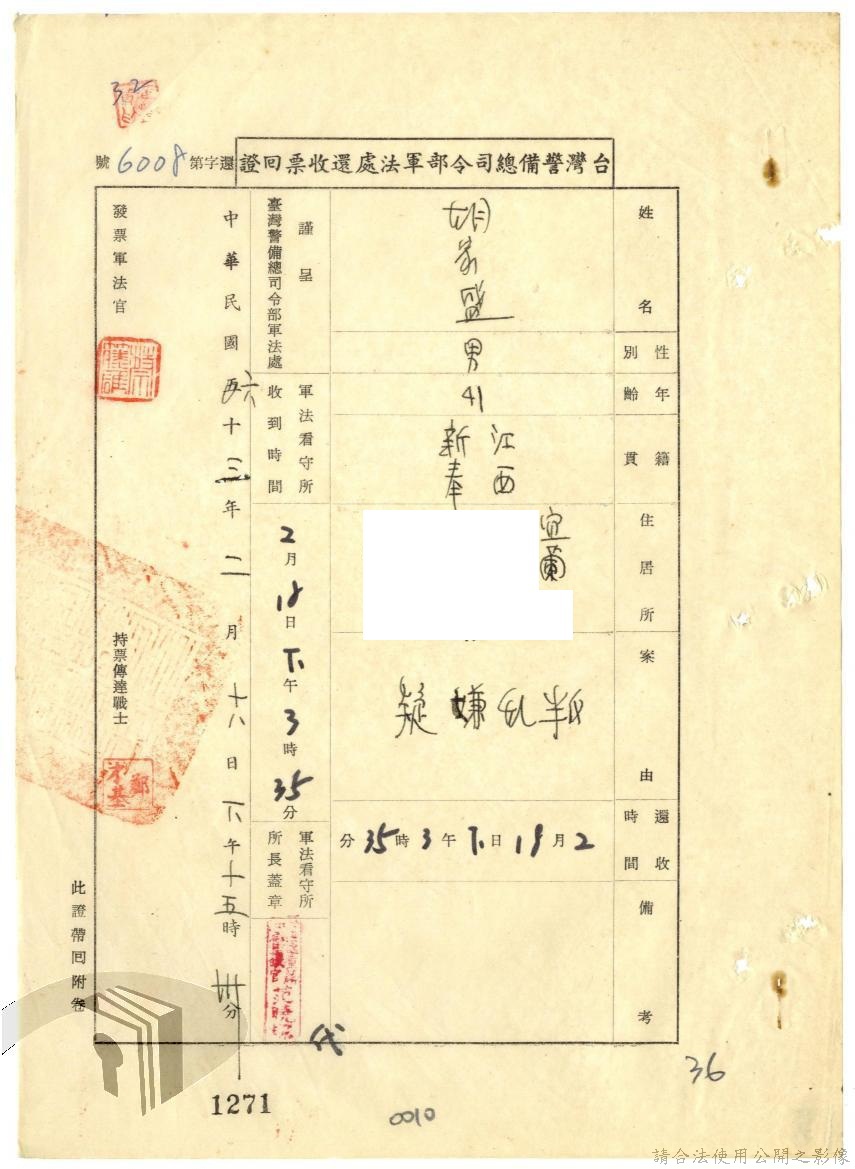 32
台灣警備總司令部軍法處還收票回證
還字第6008號
姓名
胡家盛
性別
男
年齡
41
籍貫
江西
新奉
住居所
宜蘭
案由
叛乱嫌疑
還收時間
2月18日下午3時35分
備考
謹呈
臺灣警備總司令部軍法處
軍法看守所
收到時間
2月18日下午3時35分
軍法看守所
所長蓋章
代
中華民國五十三六年二月十八日下午十五時卅分
發票軍法官
持票傳達戰士
鄭才基
此證帶回附卷
1271
0010
36
請合法使用公開之影像